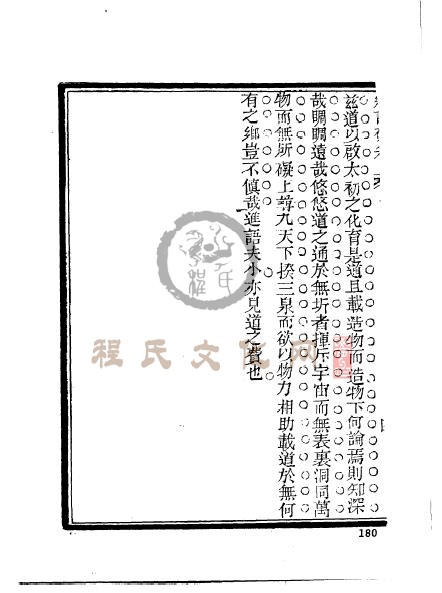 茲道以啟太初之化育是道且載造物而造物下何論焉則知深
哉睭睭遠哉悠悠道之通於無圻者揮斥宇宙而無表裏洞同萬
物而無所礙上薄九天下揆三泉而欲以物力相助載道於無何
有之鄉豈不慎哉進語夫小亦見道之費也
程氏文
180